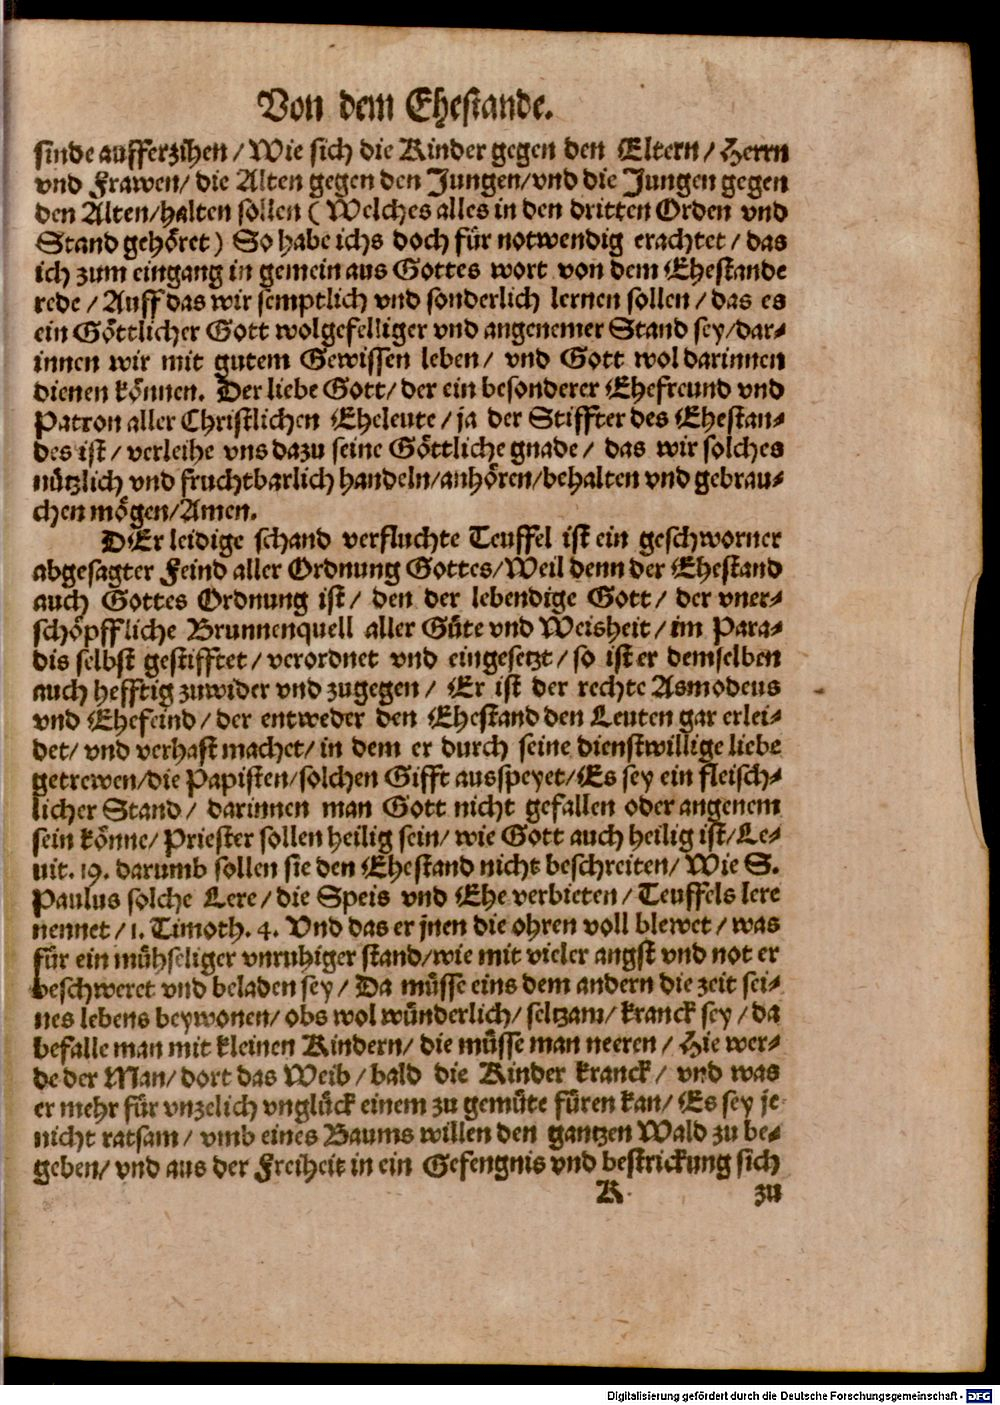 Von dem Ehestande.
sinde aufferzihen / Wie sich die Kinder gegen den Eltern / Herrn
vnd Frawen / die Alten gegen den Jungen / vnd die Jungen gegen
den Alten / halten sollen ( Welches alles in den dritten Orden vnd
Stand gehöret ) So habe ichs doch für notwendig erachtet / das
ich zum eingang in gemein aus Gottes wort von dem Ehestande
rede / Auff das wir semptlich vnd sonderlich lernen sollen / das es
ein Göttlicher Gott wolgefelliger vnd angenemer Stand sey / dar-
innen wir mit gutem Gewissen leben / vnd Gott wol darinnen
dienen können. Der liebe Gott / der ein besonderer Ehefreund vnd
Patron aller Christlichen Eheleute / ja der Stiffter des Ehestan-
des ist / verleihe vns dazu seine Göttliche gnade / das wir solches
nützlich vnd fruchtbarlich handeln / anhören / behalten vnd gebrau-
chen mögen / Amen.
DEr leidige schand verfluchte Teuffel ist ein geschworner
abgesagter Feind aller Ordnung Gottes / Weil denn der Ehestand
auch Gottes Ordnung ist / den der lebendige Gott / der vner-
schöpffliche Brunnenquell aller Güte vnd Weisheit / im Para-
dis selbst gestifftet / verordnet vnd eingesetzt / so ist er demselben
auch hefftig zuwider vnd zugegen / Er ist der rechte Asmodeus
vnd Ehefeind / der entweder den Ehestand den Leuten gar erlei-
det / vnd verhast machet / in dem er durch seine dienstwillige liebe
getrewen / die Papisten / solchen Gifft ausspeyet / Es sey ein fleisch-
licher Stand / darinnen man Gott nicht gefallen oder angenem
sein könne / Priester sollen heilig sein / wie Gott auch heilig ist / Le-
uit. 19. darumb sollen sie den Ehestand nicht beschreiten / Wie S.
Paulus solche Lere / die Speis vnd Ehe verbieten / Teuffels lere
nennet / 1. Timoth. 4. Vnd das er jnen die ohren voll blewet / was
für ein mühseliger vnruhiger stand / wie mit vieler angst vnd not er
beschweret vnd beladen sey / Da müsse eins dem andern die zeit sei-
nes lebens beywonen / obs wol wünderlich / seltzam / kranck sey / da
befalle man mit kleinen Kindern / die müsse man neeren / Hie wer-
de der Man / dort das Weib / bald die Kinder kranck / vnd was
er mehr für vnzelich vnglück einem zu gemüte füren kan / Es sey je
nicht ratsam / vmb eines Baums willen den gantzen Wald zu be-
geben / vnd aus der Freiheit in ein Gefengnis vnd bestrickung sich
K zu
Digitalisierung gefördert durch die Deutsche Forschungsgemeinschaft - DFG